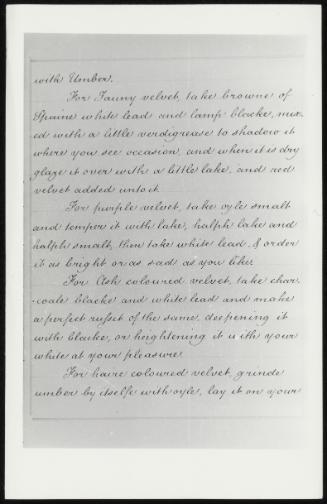 with Umber.
For Tauny velvet, take browne of
Spaine white lead and lamp blacke, mix-
ed with a little verdigrease to shadow it
where you see occasion, and when it is dry
glaze it over with a little lake, and red
velvet added unto it.
For purple velvet, take oyle smalt
and temper it with lake, halfh lake and
halfh smalt, then take white lead, & order
it as bright or as sad as you like.
For Ash coloured velvet, take char-
coale blacke and white lead and make
a perfect russet of the same, deepening it
with blacke, or heightening it with your
white at your pleasure.
For haire coloured velvet, grinde
umber by itselfe with oyle, lay it on your